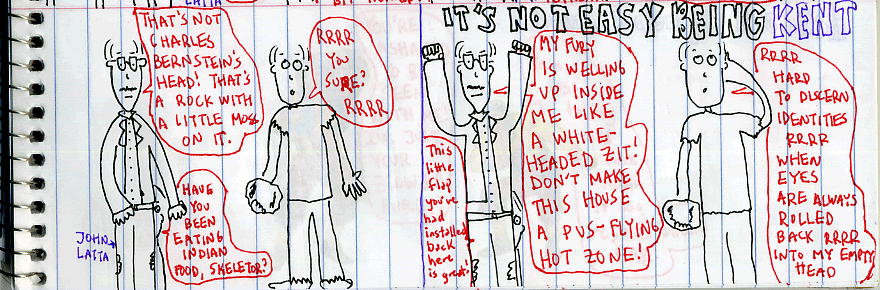 LATTA
THAT'S NOT
CHARLES
BERNSTEIN'S
HEAD! THAT'S
A ROCK WITH
A LITTLE MOSS
ON IT.
RRRR
YOU
SURE?
RRRR
HAVE
YOU
BEEN
EATING
INDIAN
FOOD, SKELETOR?
JOHN
LATTA
IT'S NOT EASY BEING KENT
MY FURY
IS WELLING
UP INSIDE
ME LIKE
A WHITE-
HEADED ZIT!
DON'T MAKE
THIS HOUSE
A PUS-FLYING
HOT ZONE!
This
little
flap
you've
had
installed
back
here
is great!
RRRR
HARD
TO DISCERN
IDENTITIES
RRRR
WHEN
EYES
ARE ALWAYS
ROLLED
BACK RRRR
INTO MY EMPTY
HEAD